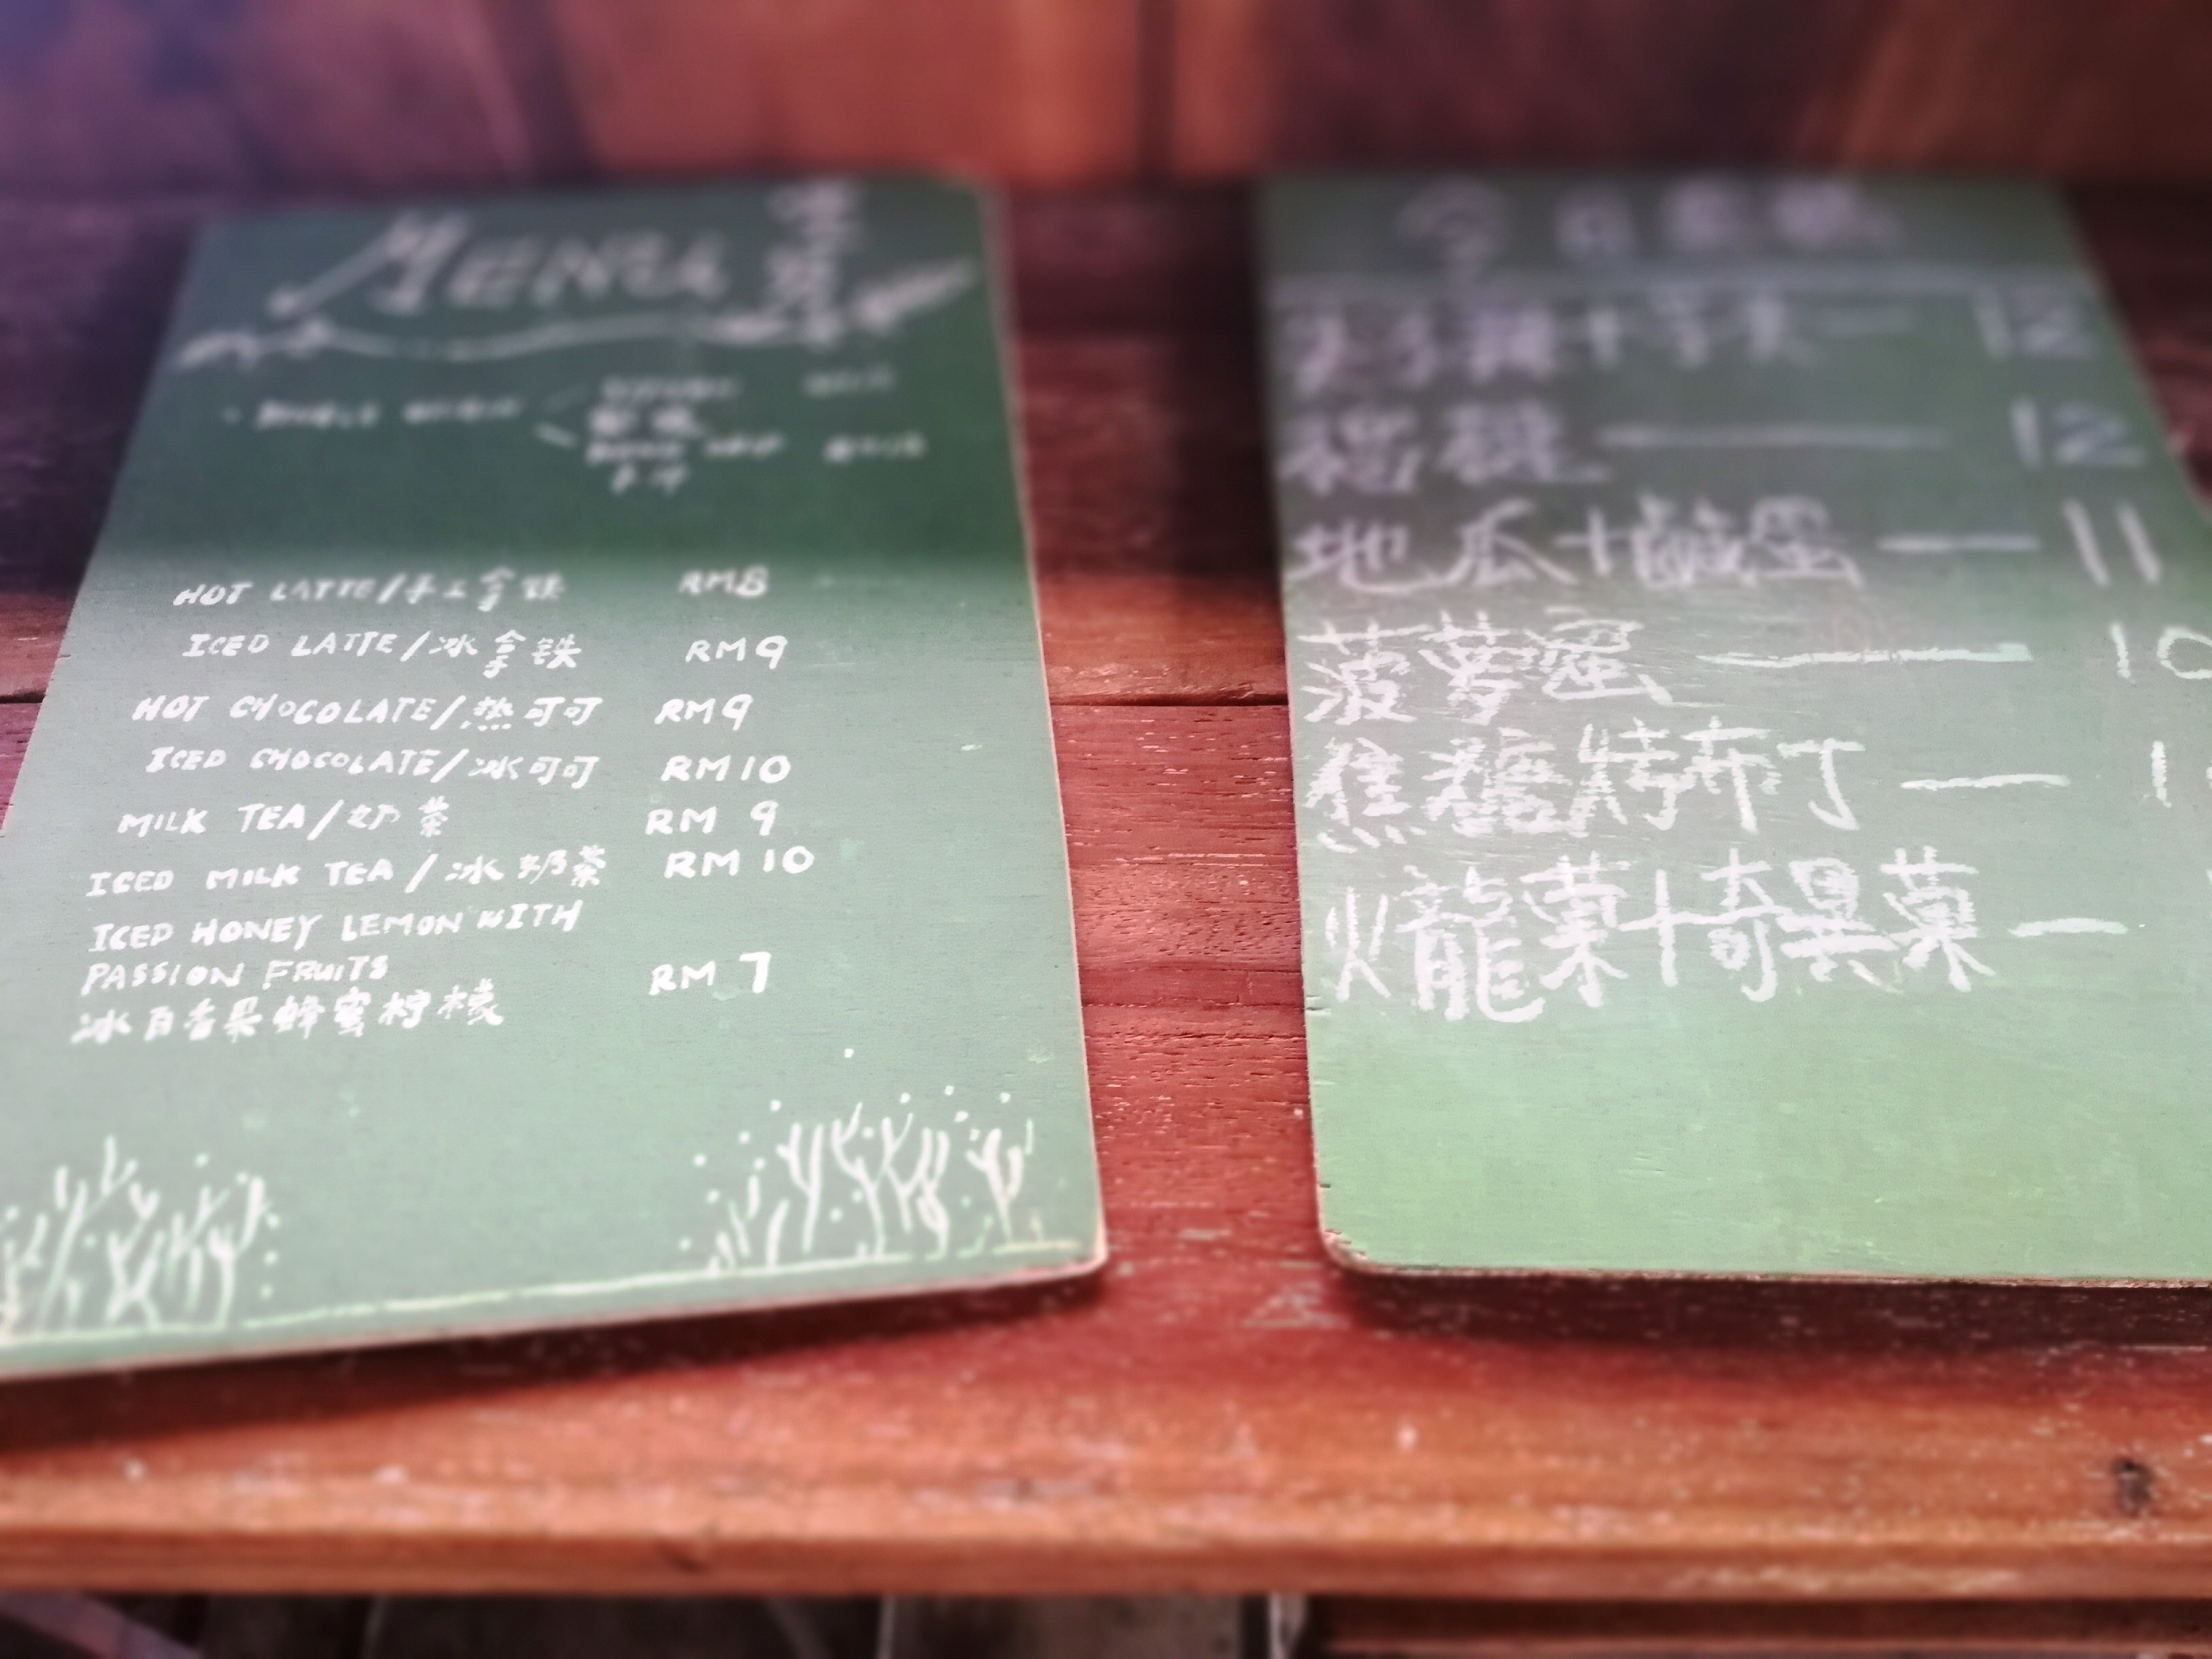 MENU
HOT LATTE/手工拿铁 RM8
ICED LATTE/冰拿铁 RM9
HOT CHOCOLATE/热可可 RM9
ICED CHOCOLATE/冰可可 RM10
MILK TEA/奶茶 RM 9
ICED MILK TEA/冰奶茶 RM 10
ICED HONEY LEMON WITH
PASSION FRUITS RM 7
冰百香果蜂蜜柠檬
今日蛋糕
12
12
地瓜+鹹蛋 — 11
菠蘿蜜 — 10
焦糖烤布丁 —
火龍菓+奇異菓 —